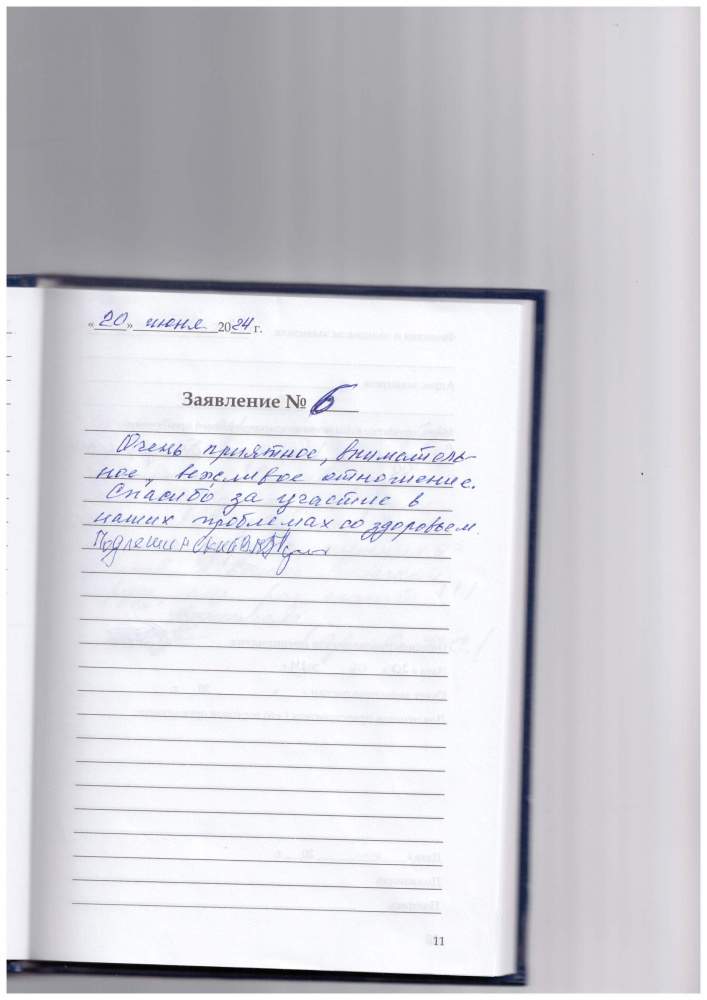 «20» июня 2024 г.
Заявление № 6
Очень приятное, вниматель-
ное, вежливое отношение.
Спасибо за участие в
наших проблемах со здоровьем.
11